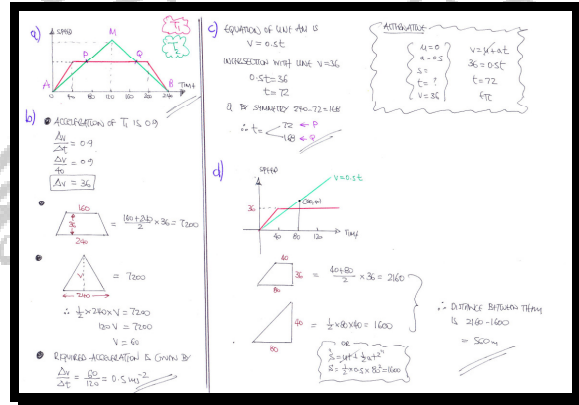 a)
SPEED
M
P
Q
A
B
TIME
40 80 120 160 200 240
T₁
T₂
b)
ACCELERATION OF T₁ IS 0.9
Δv/Δt = 0.9
Δv/40 = 0.9
Δv = 36
160
36
240
= (160+240)/2 × 36 = 7200
V
240
= 7200
∴ ½ × 240 × V = 7200
120V = 7200
V = 60
REQUIRED ACCELERATION IS GIVEN BY
Δv/Δt = 60/120 = 0.5 ms⁻²
c) EQUATION OF LINE AM IS
V = 0.5t
INTERSECTION WITH LINE V=36
0.5t=36
t=72
Q BY SYMMETRY 240-72=168
∴ t = 72 ← P
168 ← Q
ALTERNATIVE
u=0
a=0.5
s=
t=?
V=36
V=u+at
36=0.5t
t=72
ETC
d)
SPEED
V=0.5t
36
40 80 120
TIME
40
36
80
= (40+80)/2 × 36 = 2160
40
80
= ½×80×40 = 1600
OR
s = ut+½at²
s = ½×0.5×80²=1600
∴ DISTANCE BETWEEN THEM
IS 2160-1600
= 560m